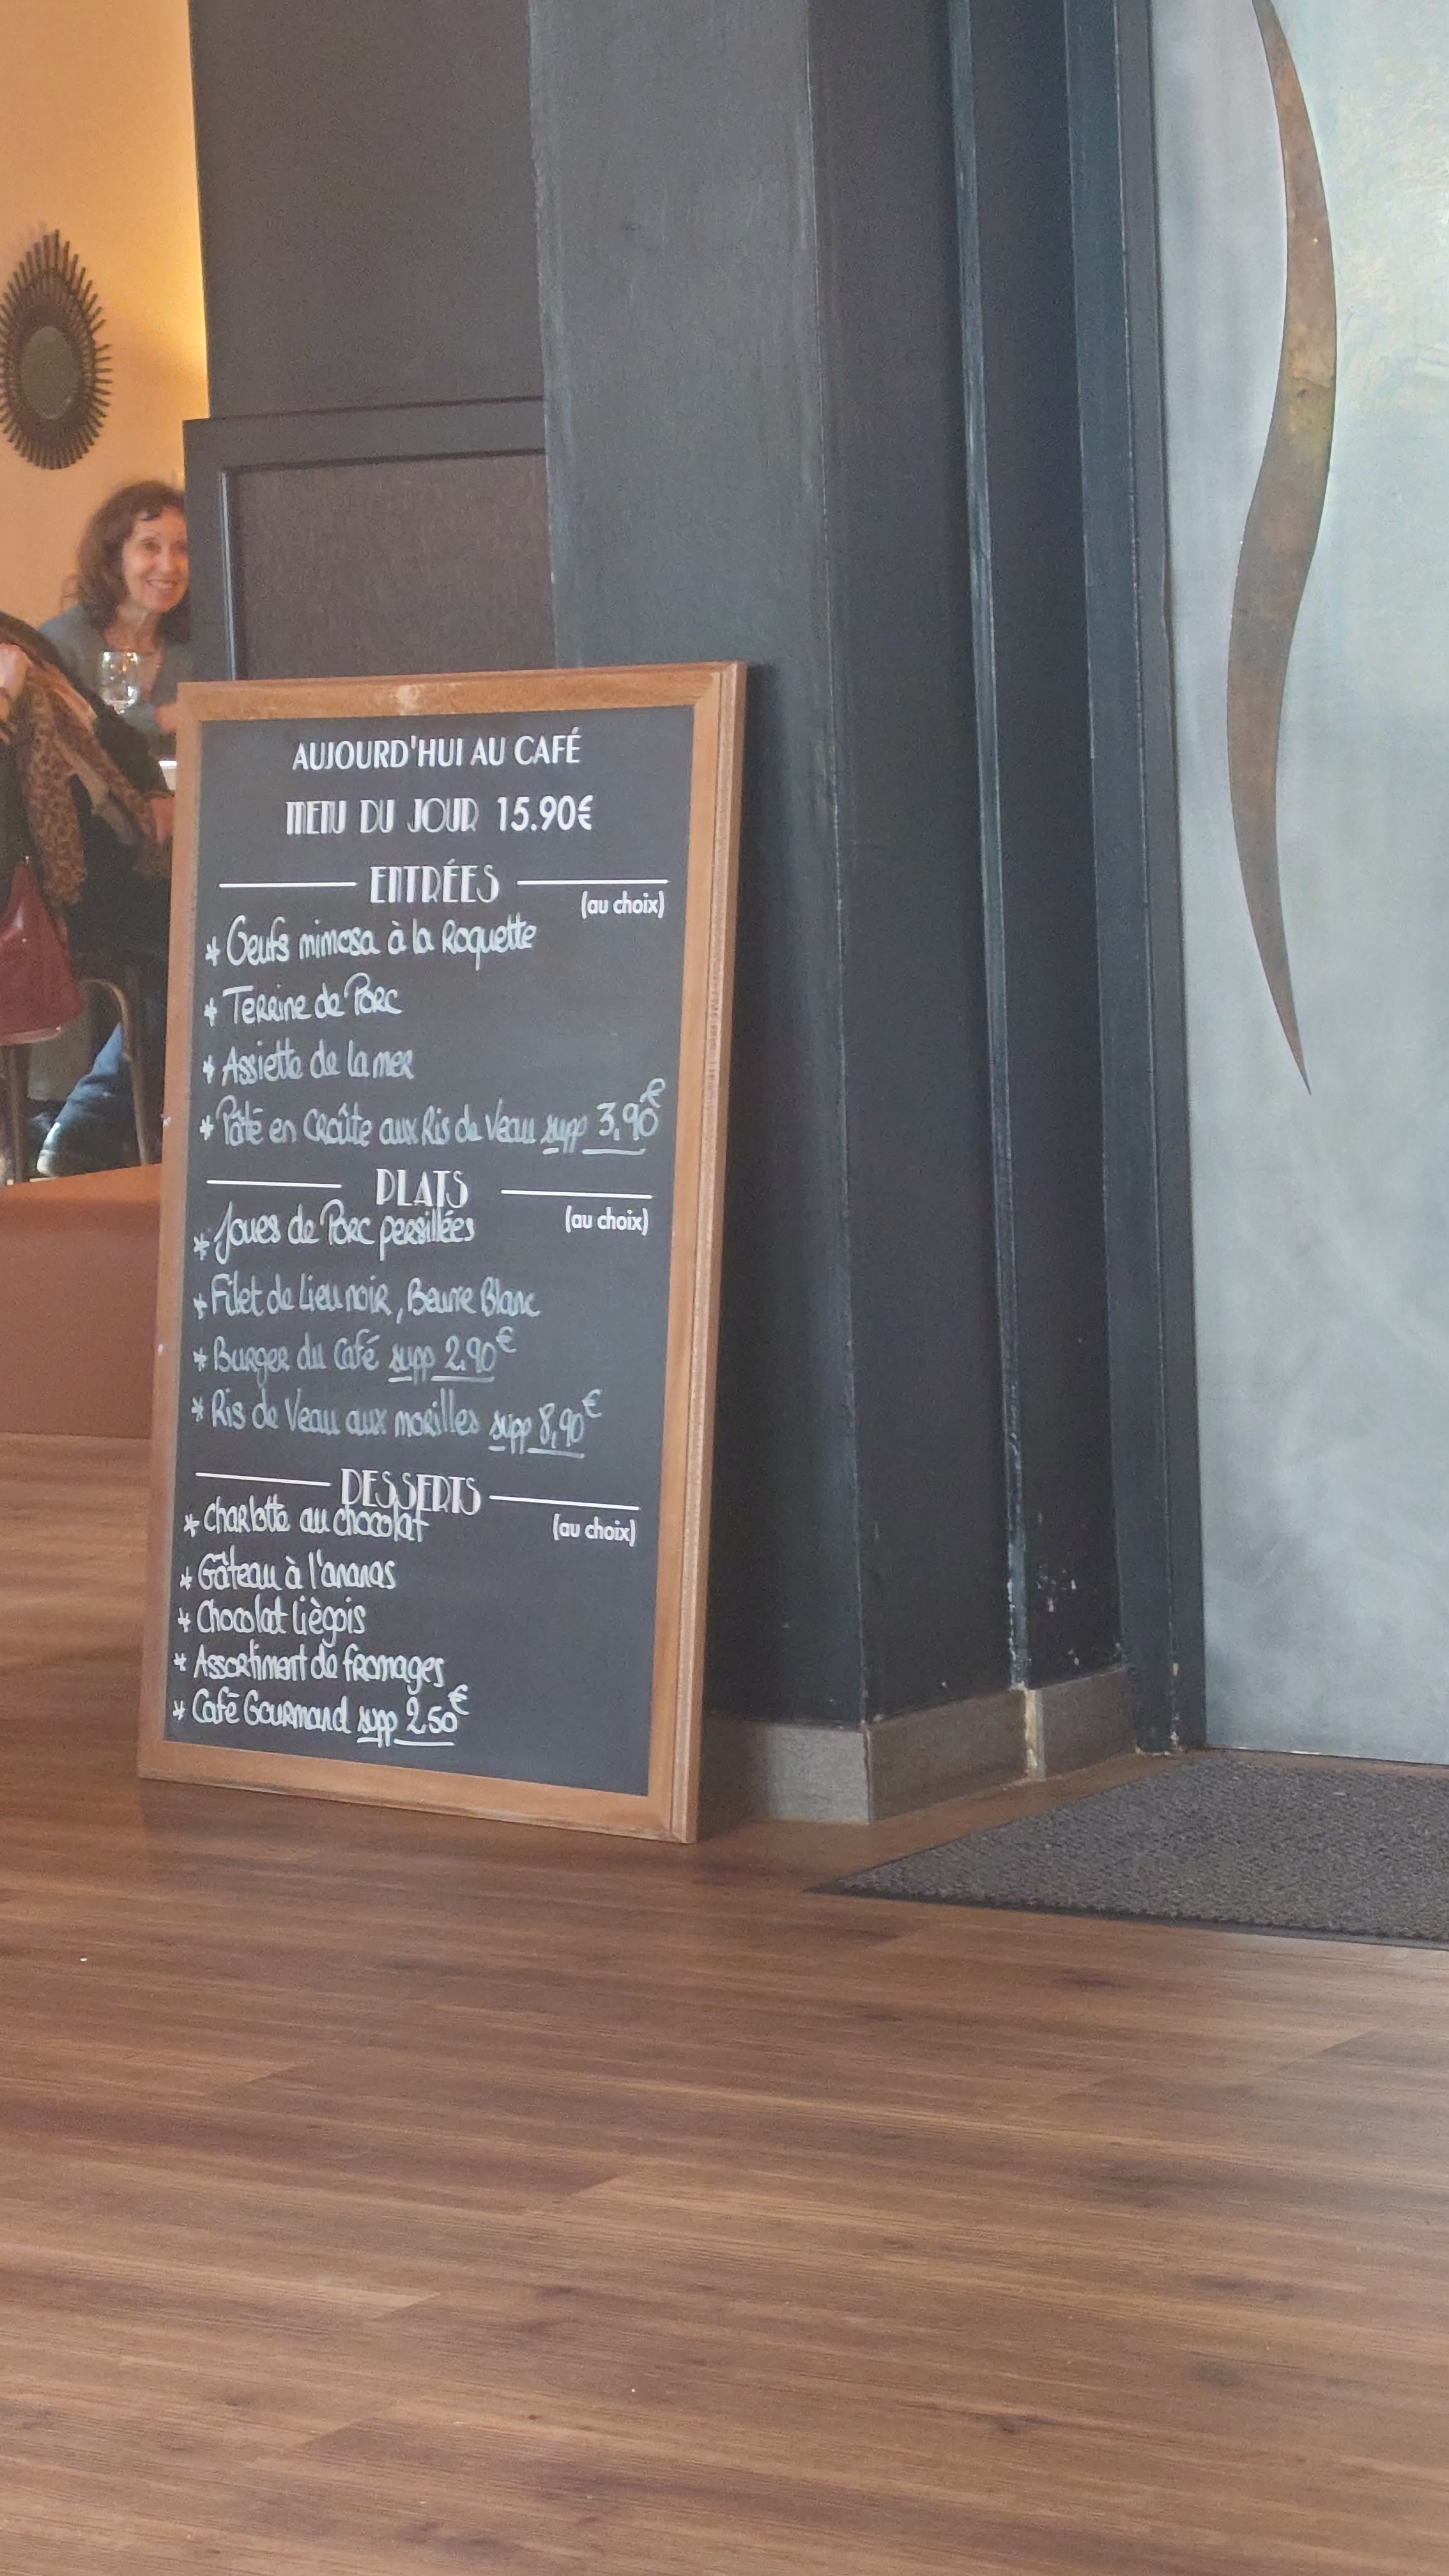 AUJOURD'HUI AU CAFÉ
MENU DU JOUR 15.90€
ENTRÉES
(au choix)
* Oeufs mimosa à la Roquette
* Terrine de Porc
* Assiette de la mer
* Pâté en Croûte aux Ris de Veau supp 3,90€
PLATS
(au choix)
* Joues de Porc persillées
* Filet de Lieu noir, Beurre Blanc
* Burger du Café supp 2,90€
* Ris de Veau aux morilles supp 8,90€
DESSERTS
(au choix)
* Charlotte au chocolat
* Gâteau à l'ananas
* Chocolat Liègois
* Assortiment de fromages
* Café Gourmand supp 2.50€